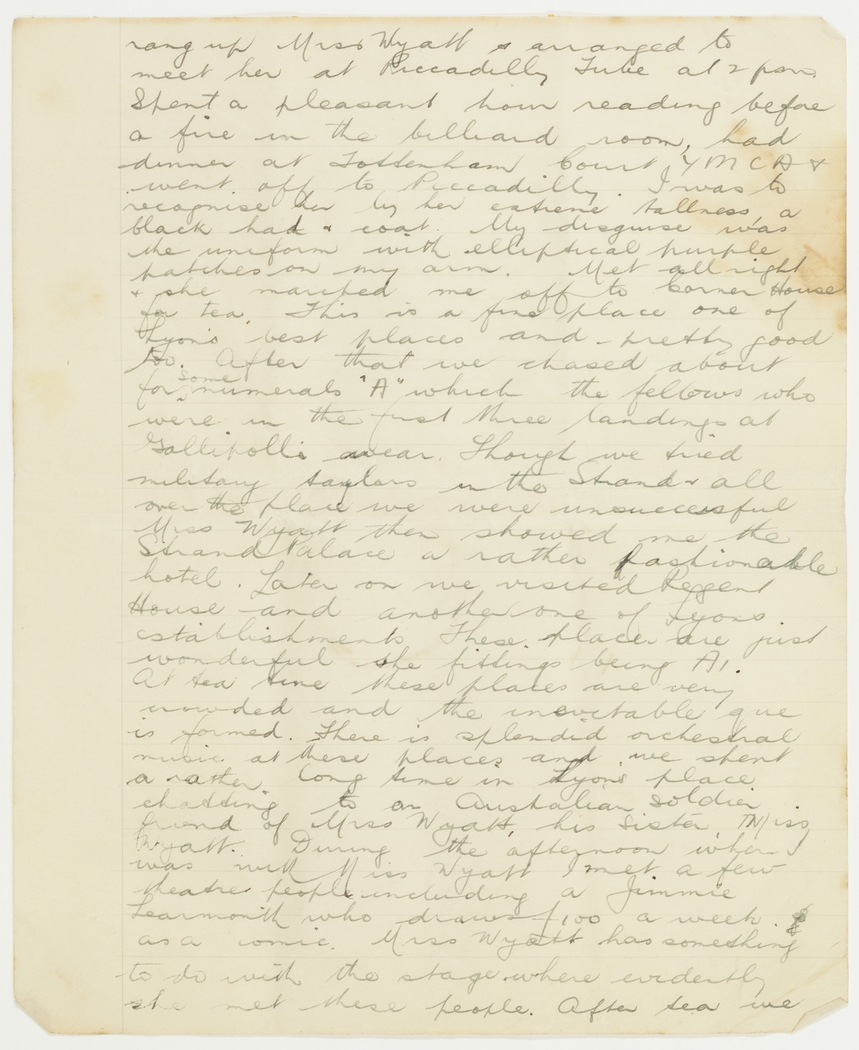 rang up Miss Wyatt & arranged to
meet her at Piccadilly Tube at 2 pm.
Spent a pleasant hour reading before
a fire in the billiard room, had
dinner at Tottenham Court, Y M C A &
went off to Piccadilly. I was to
recognise her by her extreme tallness, a
black hat & coat. My disguise was
the uniform with elliptical purple
patches on my arm. Met all right
& she marched me off to Corner House
for tea. This is a fine place one of
Lyons best places and pretty good
too. After that we chased about
for some numerals "A" which the fellows who
were in the first three landings at
Gallipolli wear. Though we tried
military taylors in the Strand & all
over the place we were unsuccessful
Miss Wyatt then showed me the
Strand Palace a rather fashionable
hotel. Later on we visited Regent
House and another one of Lyons
establishments These places are just
wonderful the fittings being A1.
At tea time these places are very
crowded and the inevitable que
is formed. There is splendid orchestral
music at these places and we spent
a rather long time in Lyons place
chatting to an Australian soldier
friend of Miss Wyatt, his sister, Miss
Wyatt. During the afternoon when I
was with Miss Wyatt I met a few
theatre people including a Jimmie
Learmonth who draws £100 a week
as a comic. Miss Wyatt has something
to do with the stage where evidently
she met these people. After tea we